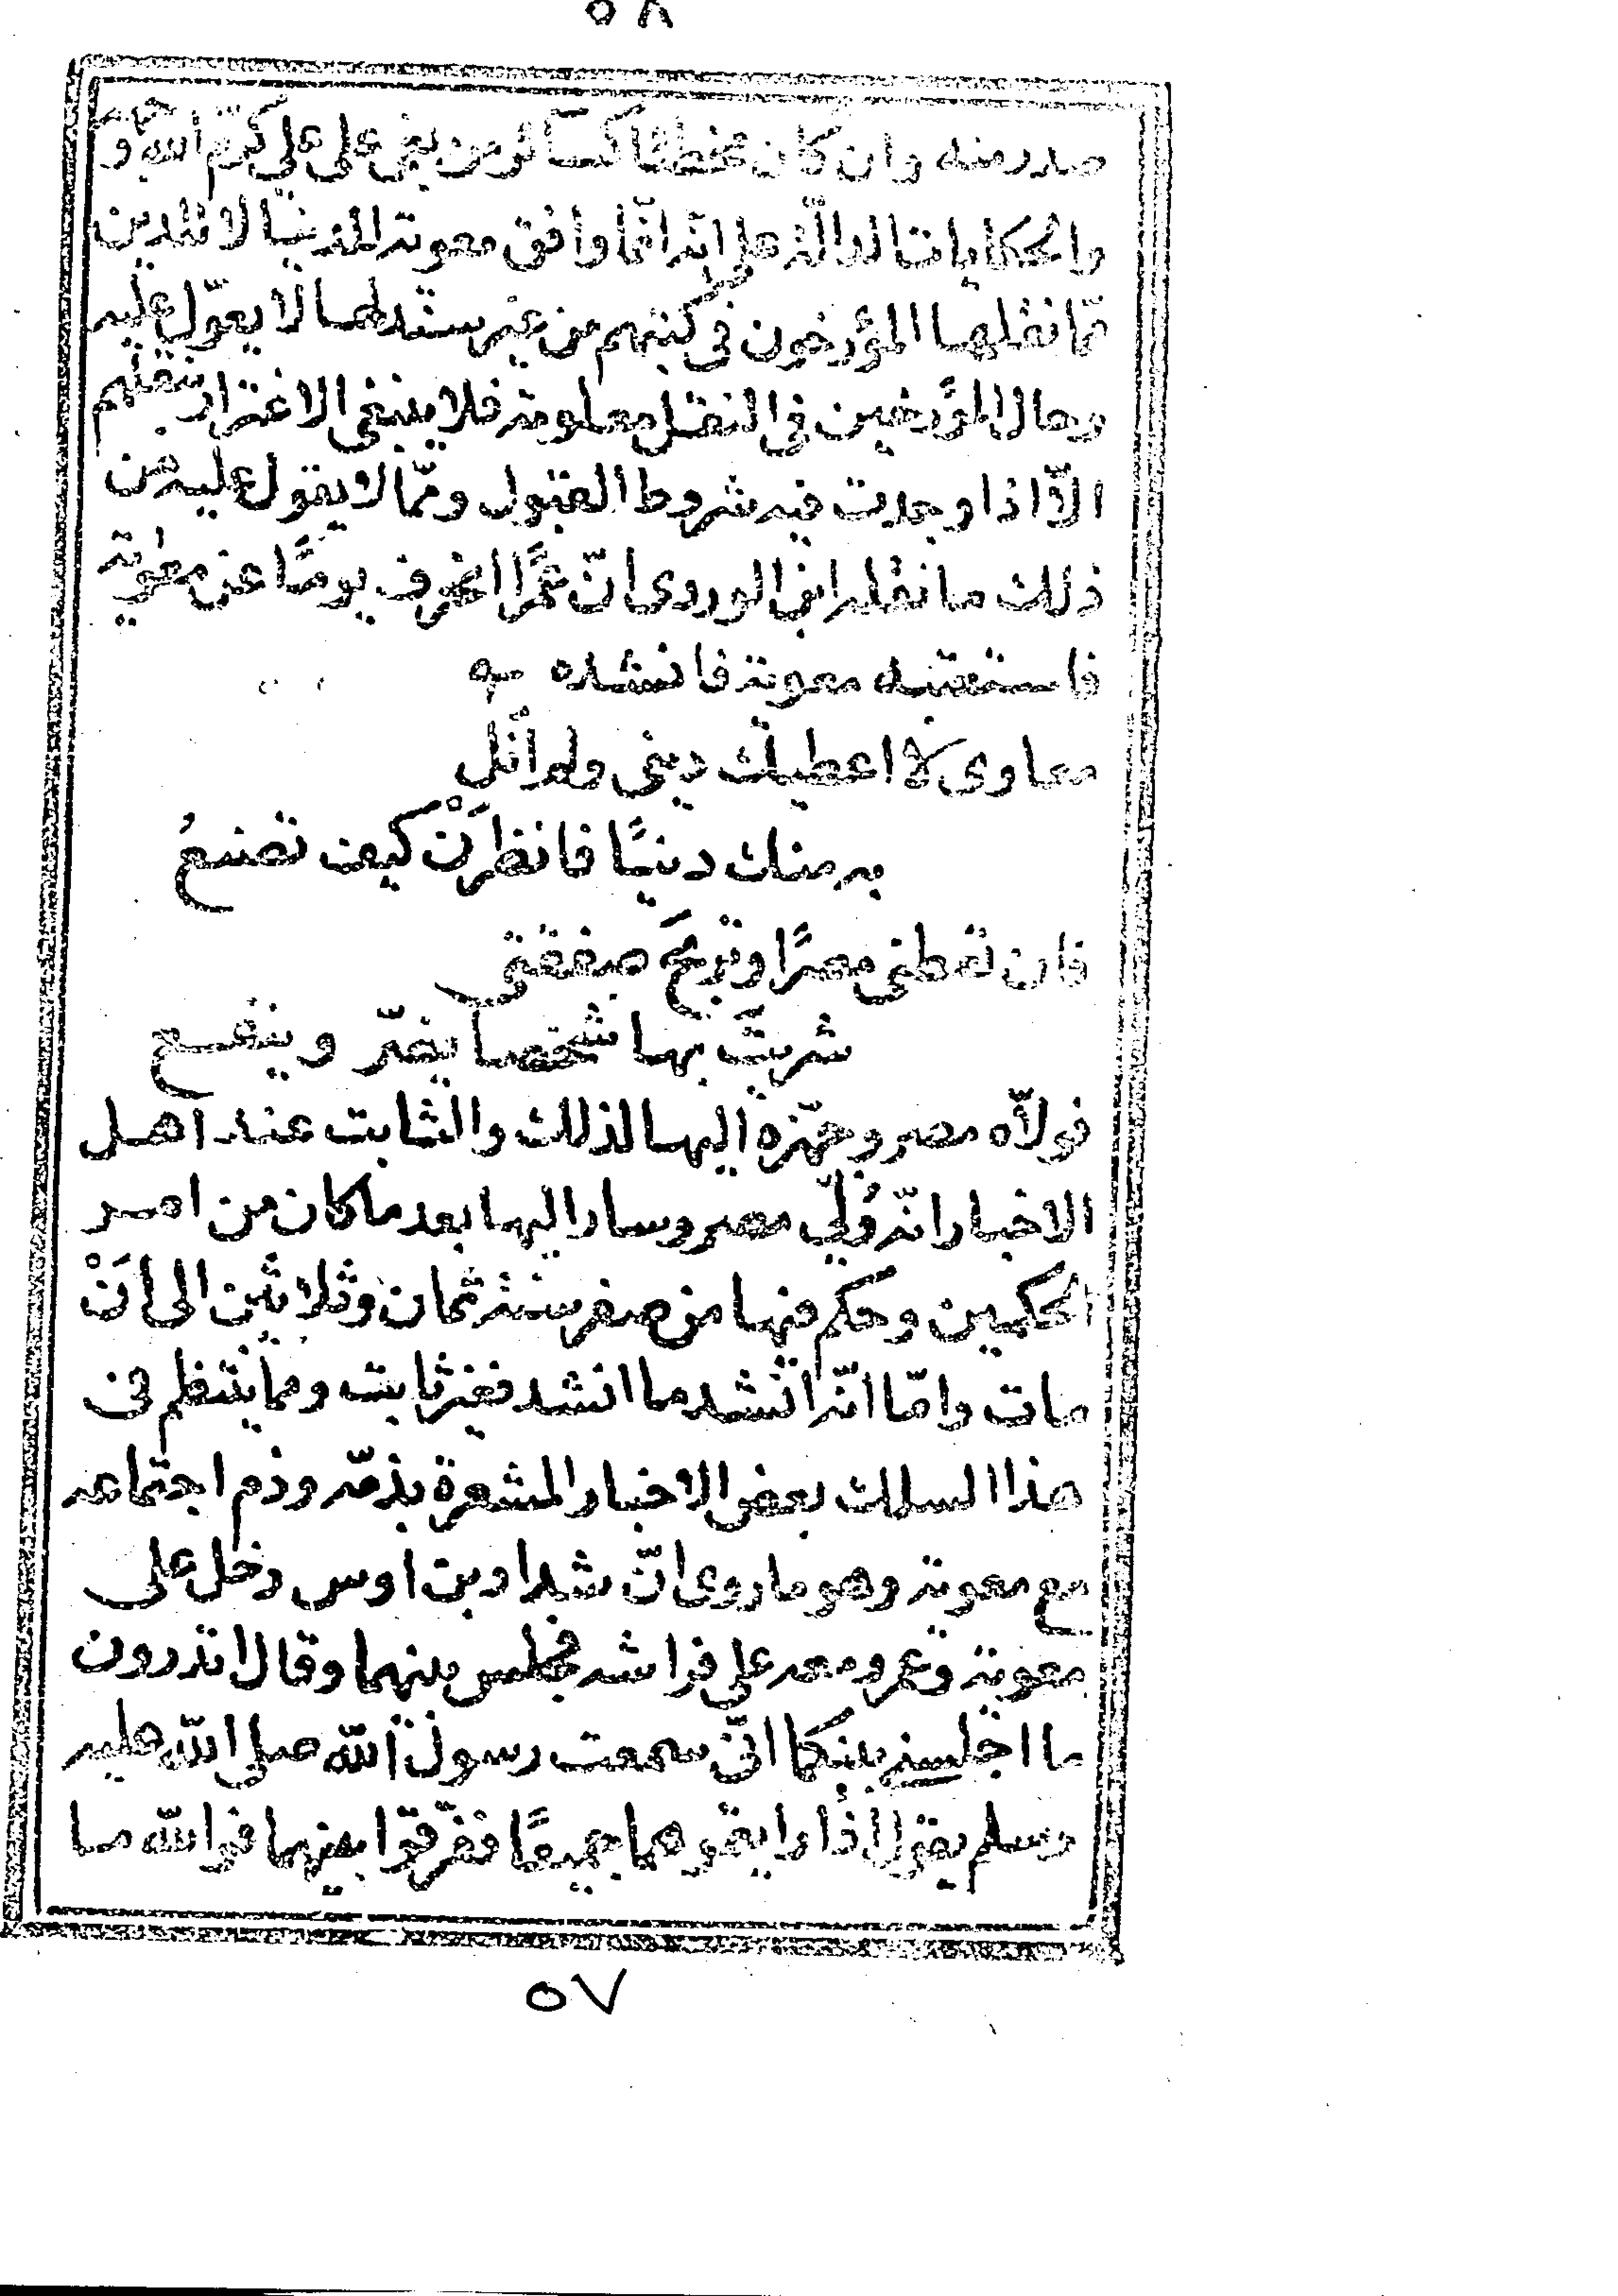 ٥٨
صدر منه وان كان مخطئا كسائر من بغى على علي كرم الله و
والحكايات الدالة على انه انما وافق معوية للدنيا لا للدين
مما نقلها المؤرخون في كتبهم من غير سند لها لا يعوّل عليه
وحال المؤرخين في النقل معلومة فلا ينبغي الاغترار بنقلهم
الاّ اذا وجدت فيه شروط القبول وممّا لا يقول عليه من
ذلك ما نقله ابن الوردى انّ عمرًا انحرف يومًا عن معوية
فاستعتبه معوية فانشده
معاوى لا اعطيك دينى ولم أنل
به منك دنيًا فانظرَنْ كيف تصنعُ
فان تعطنى مصرًا وتربحَ صفقتى
شريتَ بها شخصا يضرّ وينفع
فولاّه مصر وجهّزه اليها لذلك والثابت عند اهل
الاخبار انه وُلّي مصر وسار اليها بعد ما كان من امر
الحكمين وحكم فيها من صفر سنة ثمان وثلاثين الى أنْ
مات وامّا انّه انشد ما انشد فغير ثابت ومما ينتظم في
هذا السلك بعض الاخبار المشعرة بذمّه وذم اجتماعه
مع معوية وهو ما روى انّ شداد بن اوس دخل على
معوية وعمرو معه على فراشه فجلس بينهما وقال اتدرون
ما اجلسني بينكما انّى سمعت رسول الله صلى الله عليه
وسلم يقول اذا رايتموهما جميعًا ففرّقوا بينهما فوالله ما
٥٧